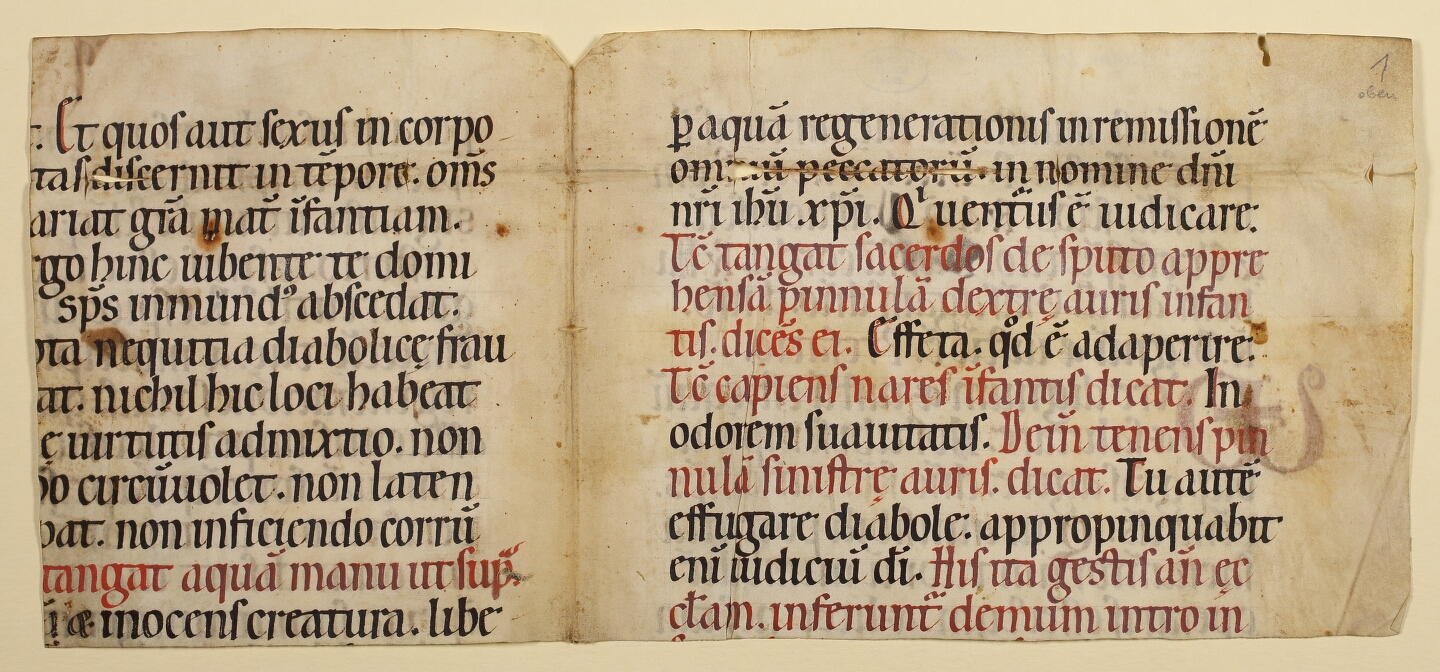 Et quos aut sexus in corpo
tas discernit in tēpore. om̄s
ariat grā mat̄ ĩfantiam.
go hinc iubente te domi
sp̄s inmundꝰ abscedat.
ota nequitia diabolicę frau
at. nichil hic loci habeat
ę uirtutis admixtio. non
do circūuolet. non laten
pat. non inficiendo corrū
tangat aquā manu ut sup̄.
inocens creatura. libe
ꝑ aquā regenerationis in remissionē
omniū peccatorū. in nomine dn̄i
nr̄i ihū xp̄i. Qͥ uentūs ē iudicare.
Tc̄ tangat sacerdos de sputo appre
hensā pinnulā dextrę auris infan
tis. dicēs ei. Effeta. qd̊ ē adaperire.
Tc̄ capiens nares ĩfantis dicat. In
odorem suauitatis. Dein̄ tenens pin
nulā sinistrę auris. dicat. Tu autē
effugare diabole. appropinquabit
enī iudiciū dī. His ita gestis an̄ ęc
cl̄am. inferunt̄ demum intro in
1
oben